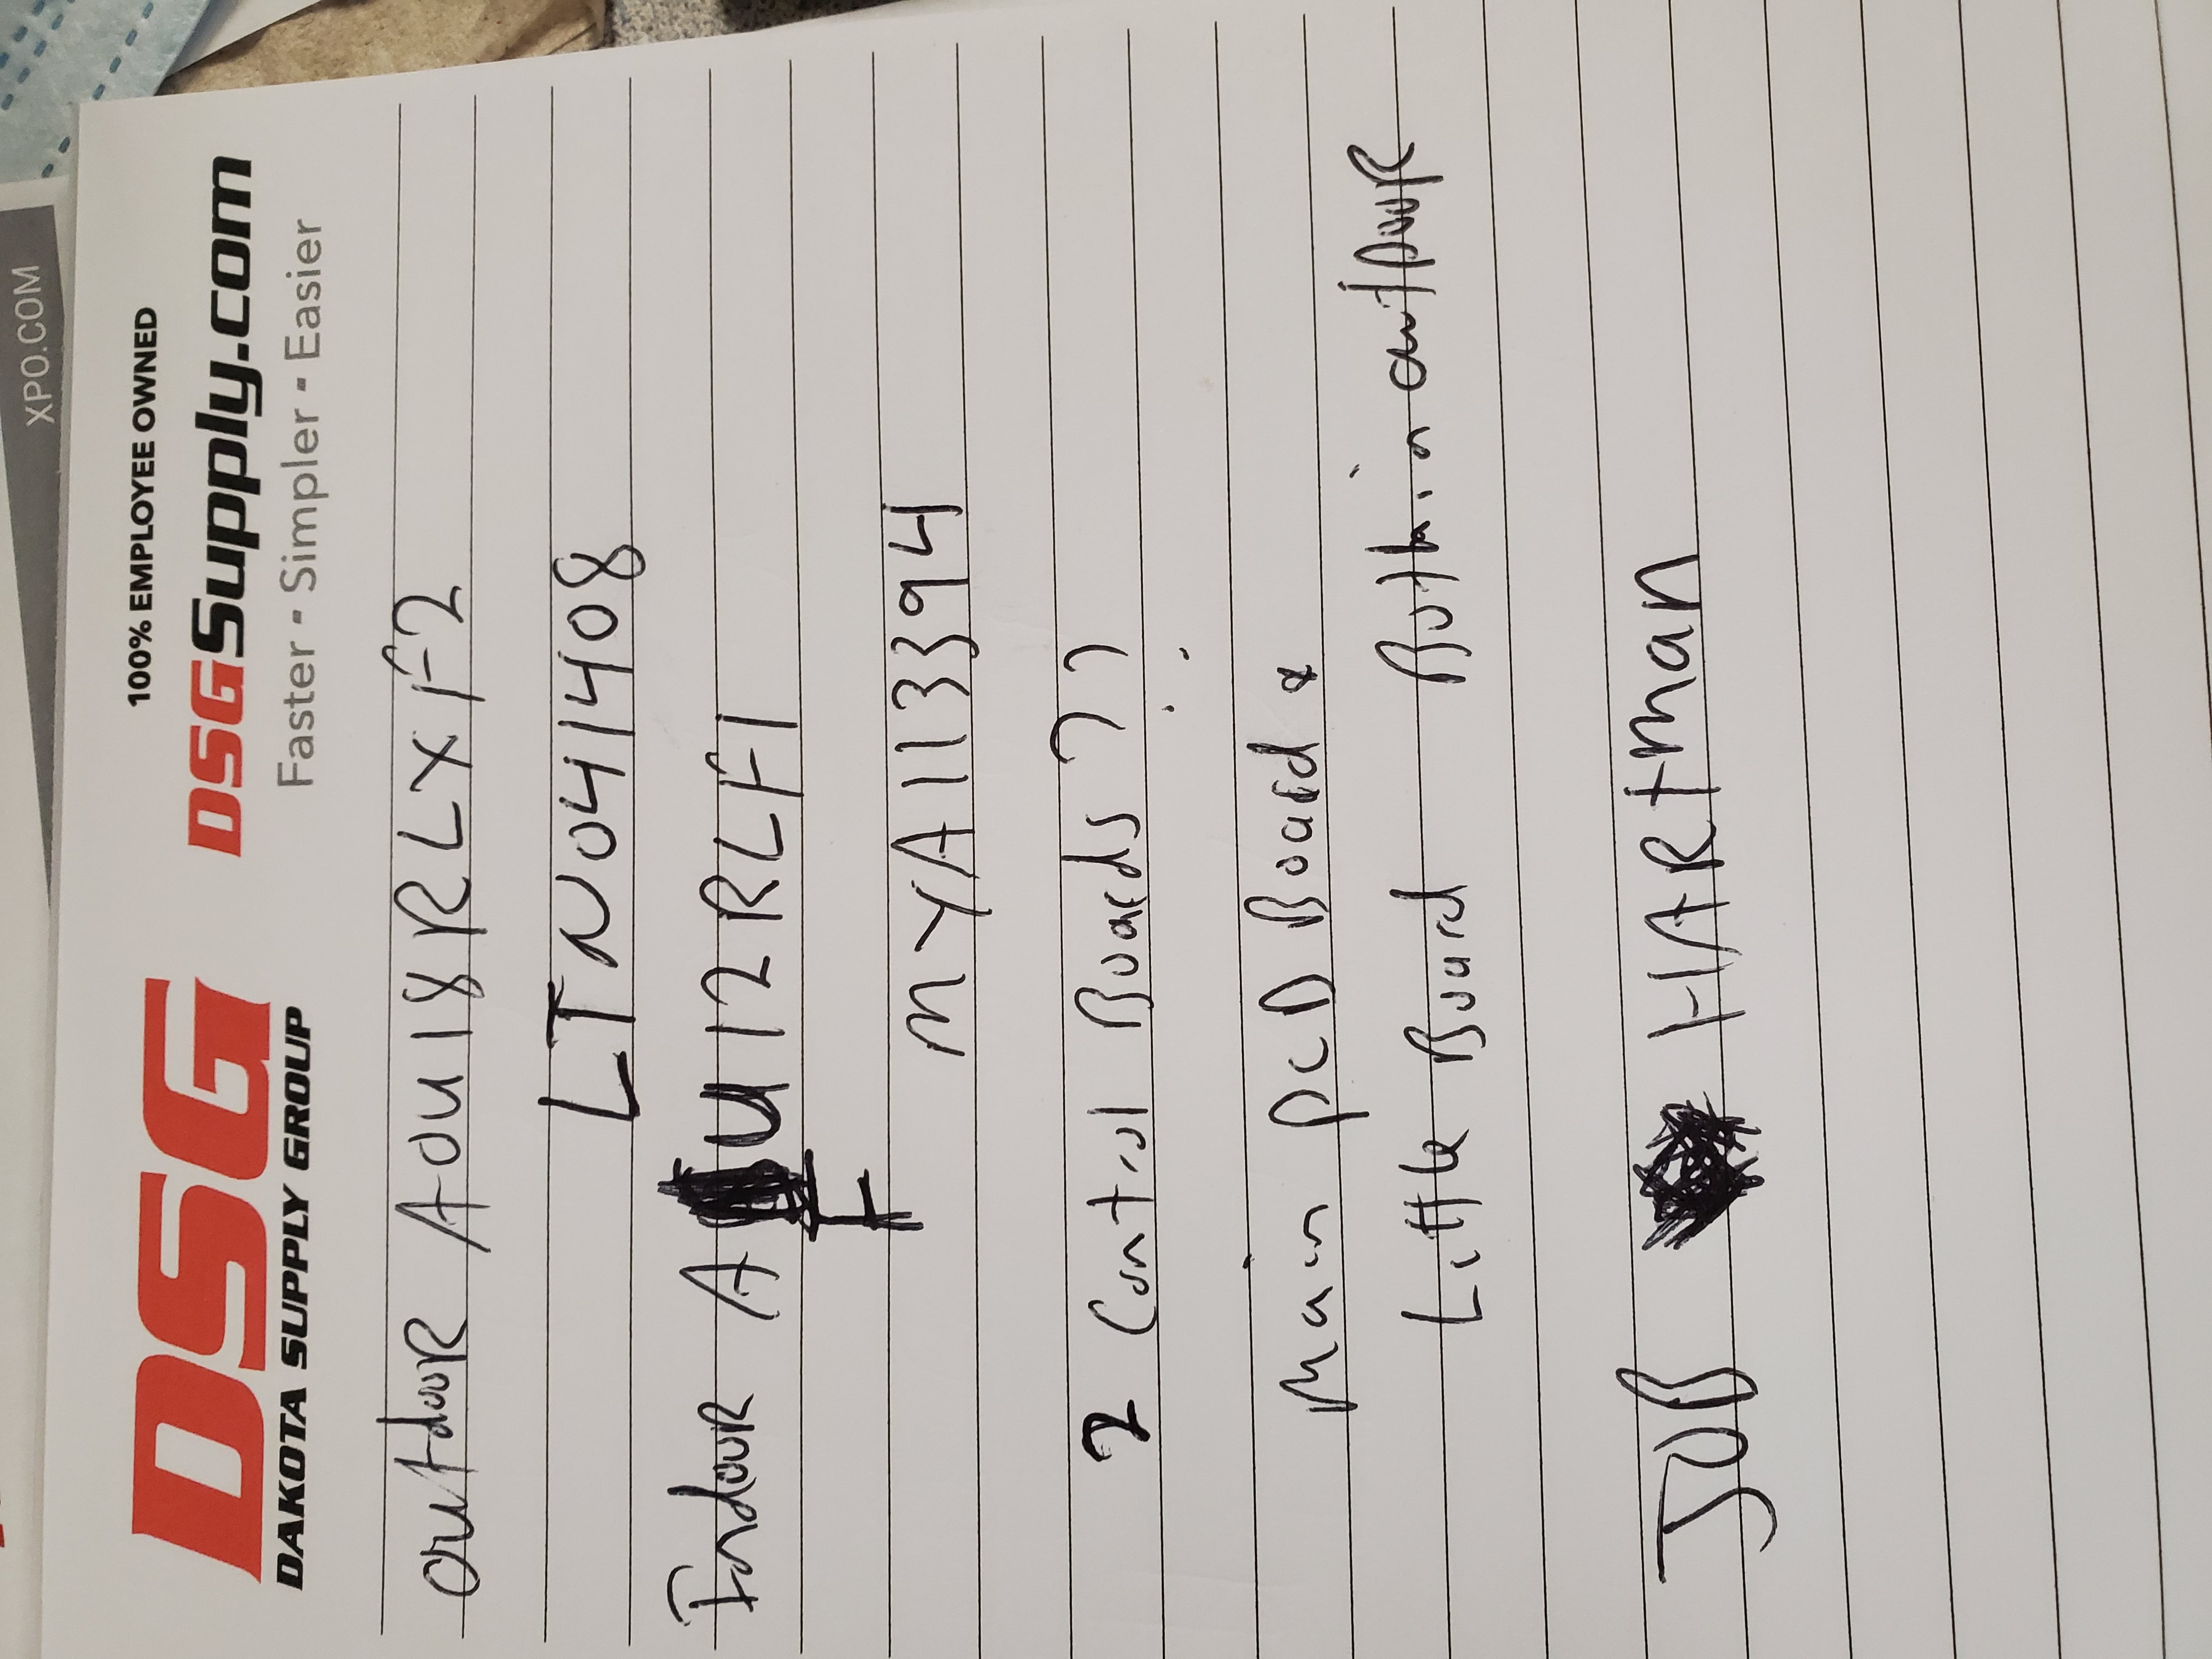 XPO.COM
DSG
DAKOTA SUPPLY GROUP
100% EMPLOYEE OWNED
DSGSupply.com
Faster - Simpler - Easier
outdoor AOU18RLXF2
LTN041408
Indoor A U12RLF1
F
MYA113394
2 Control Boards ??
Main PCB Board &
Little Board Both in outDoor
JOB HARtman